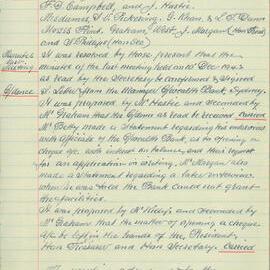 F. G. Campbell, and J. Hastie.
Mesdames Pickering, G. Shaw, & L. F. Dunn
Messrs Flint, Graham, West, J. Morgan (Hon Pres)
and (Hon Sec)
Minutes
last
Meeting
It was resolved by those present that the
minutes of the last meeting held on 10 Dec 1942
as read by the Secretary be confirmed & signed
A letter from the Manager Commonwealth Bank, Sydney.
It was proposed by Mr Hastie and Seconded by
Mr Graham that the Corres as read be received Carried
Mr Betty made a Statement regarding his endeavours
with Officials of the Bank, as to opening a
cheque a/c, with
for an application in writing. Mr Morgan also
made a Statement regarding a later interview
when he was told the Bank could not grant
the facilities.
It was proposed by Mr and Seconded by
Mr Graham that the matter of opening a cheque
a/c be left in the hands of the President,
Hon Treasurer and Hon Secretary. Carried